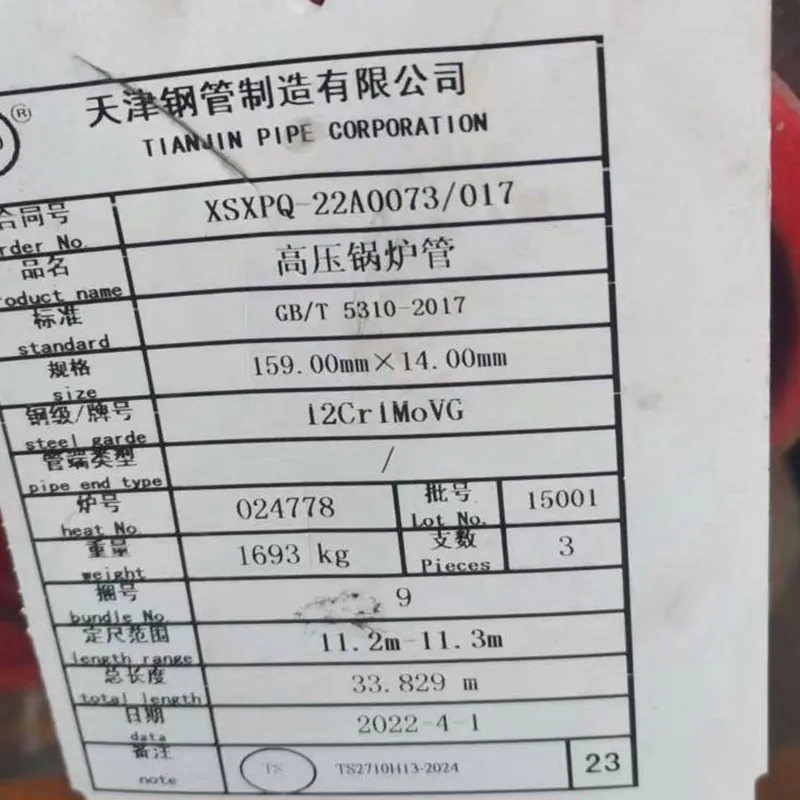 ®
天津钢管制造有限公司
TIANJIN PIPE CORPORATION
合同号 XSXPQ-22A0073/017
rder No.
品名 高压锅炉管
oduct name
标准 GB/T 5310-2017
standard
规格 159.00mm×14.00mm
size
钢级/牌号 12Cr1MoVG
steel garde
管端类型 /
pipe end type
炉号 024778 批号 15001
heat No. Lot No.
重量 1693 kg 支数 3
weight Pieces
捆号 9
bundle No.
定尺范围 11.2m-11.3m
length range
总长度 33.829 m
total length
日期 2022-4-1
data
备注 TS TS2710H13-2024 23
note